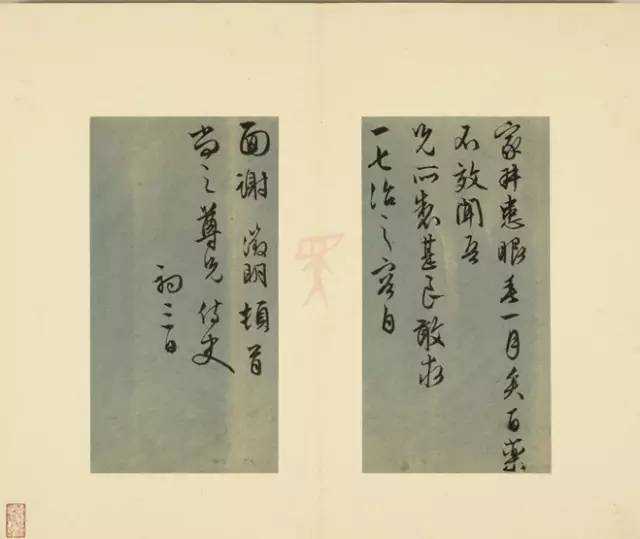 家姊患眼垂一月矣百藥
不效聞吾
兄所製甚良敢求
一匕治之容自
面謝 徵明頓首
尚之尊兄侍史
初三日